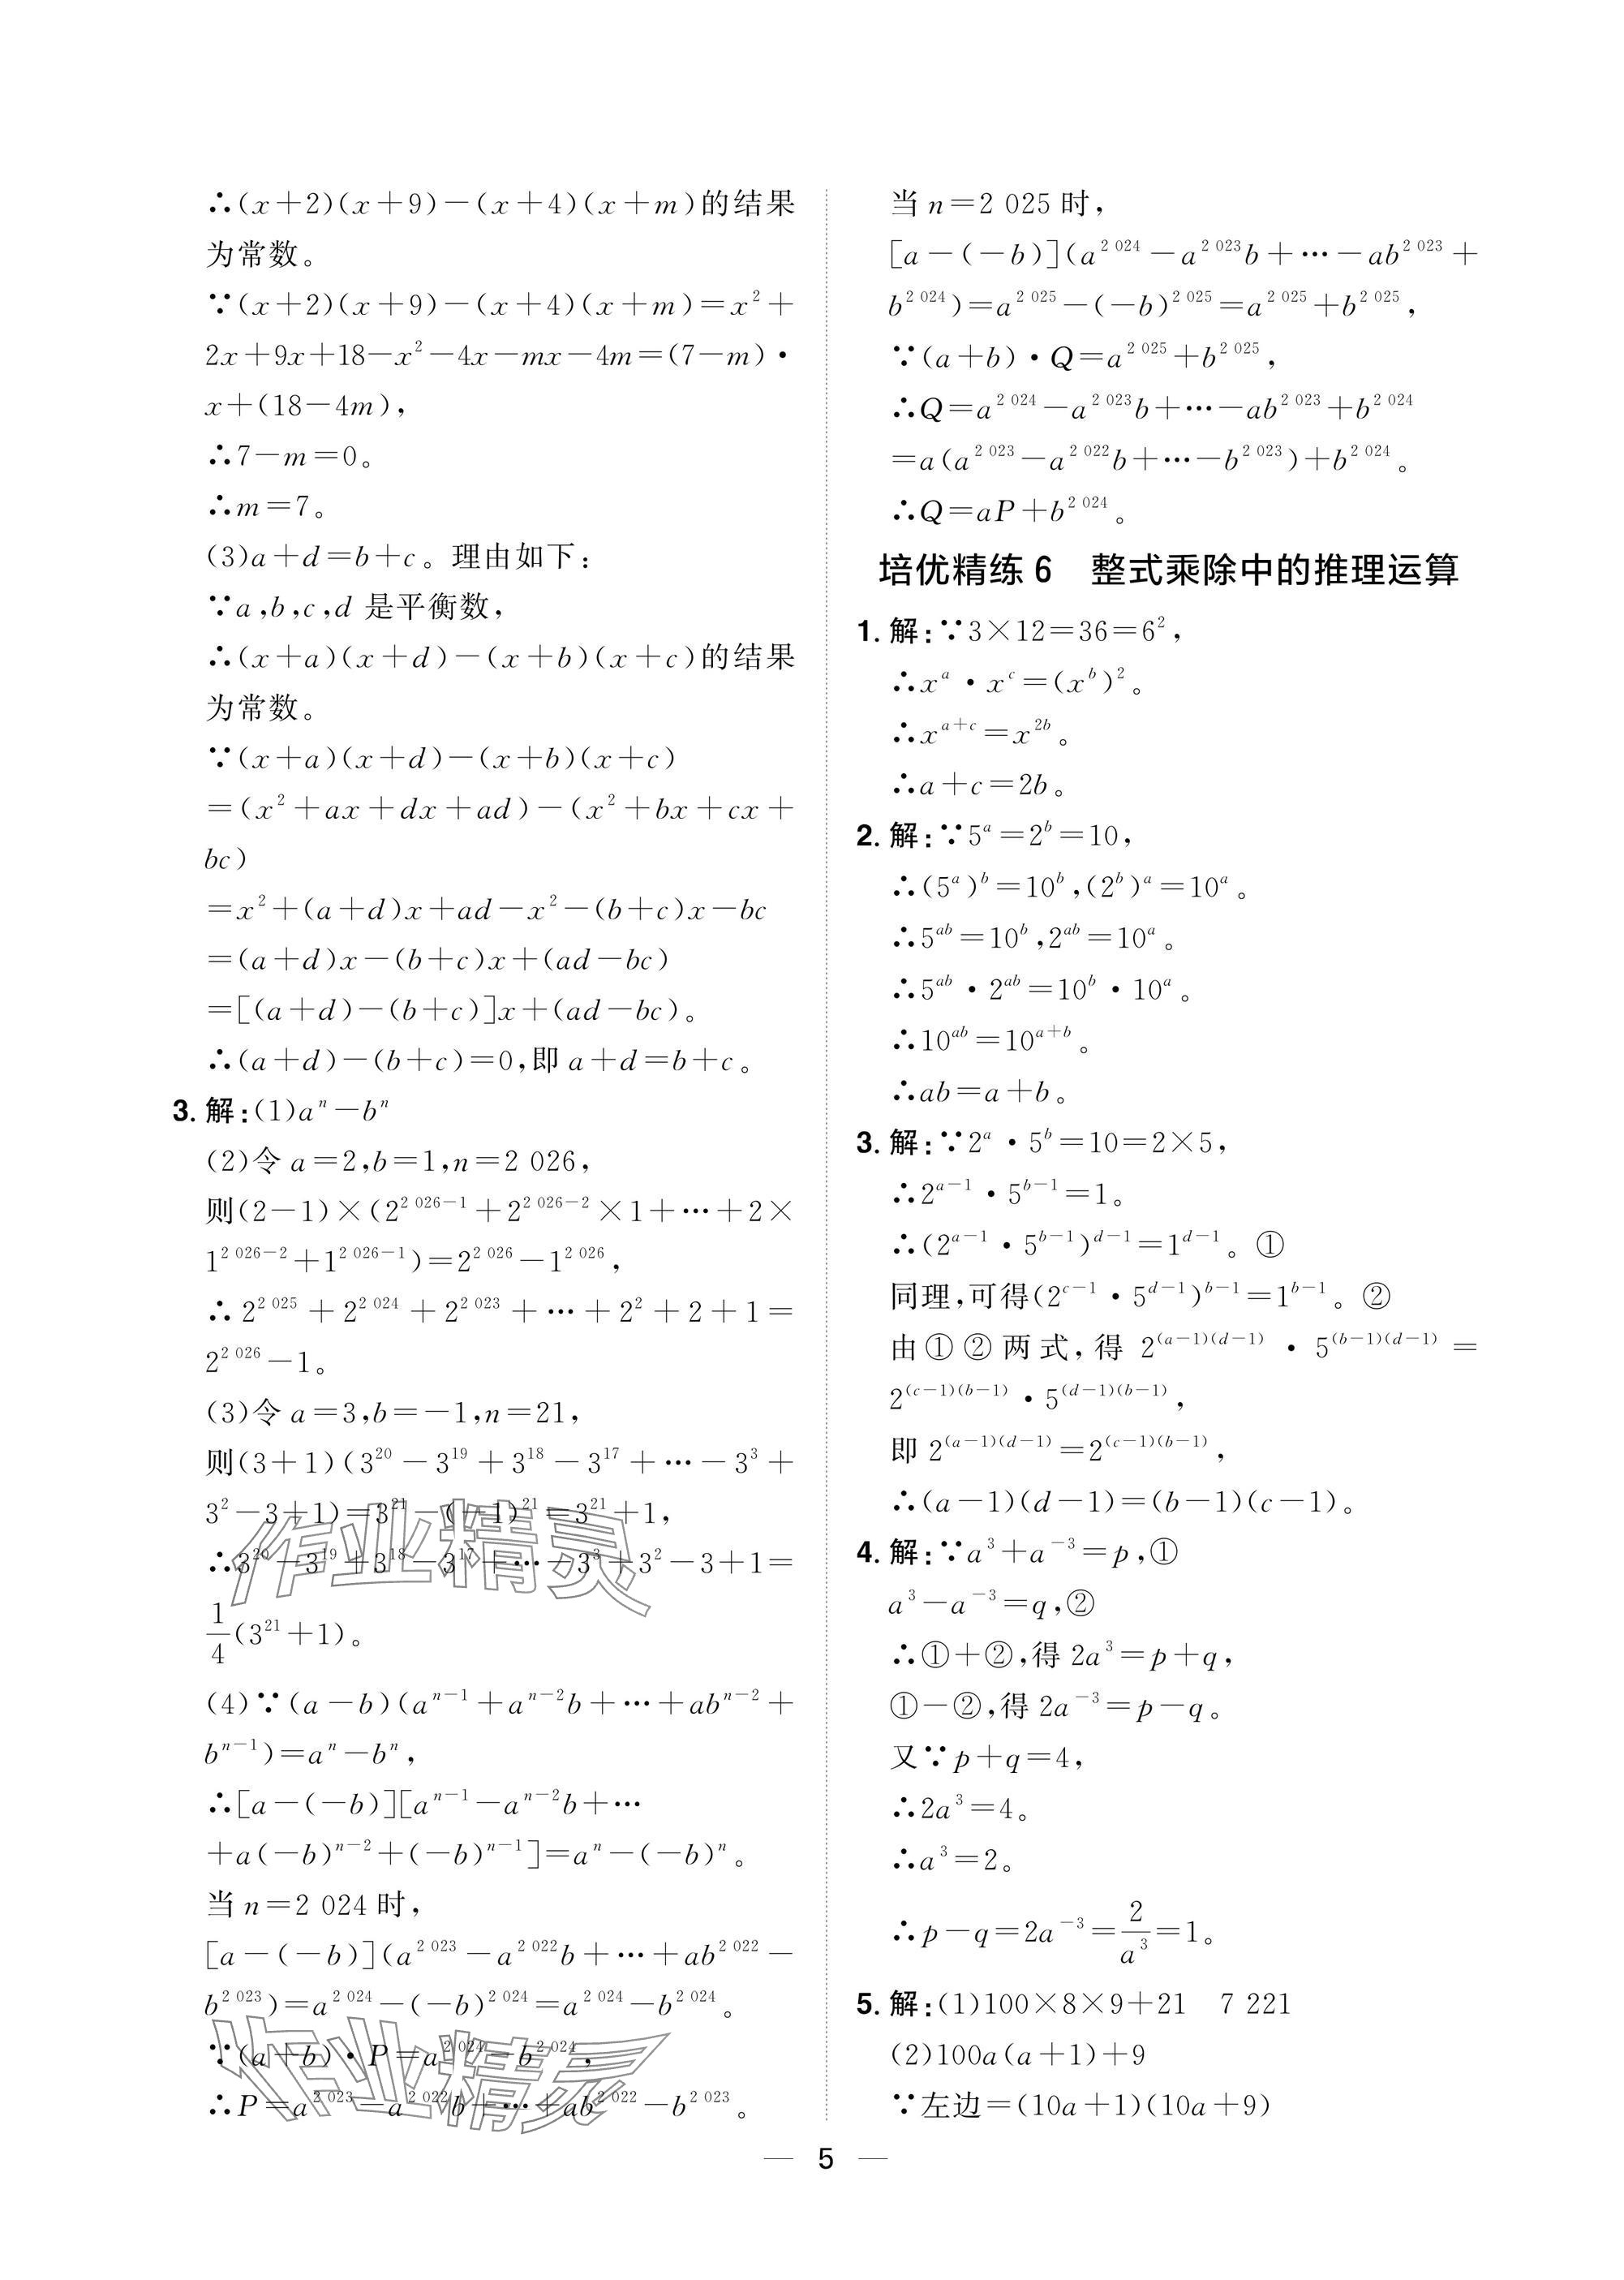 ∴(x+2)(x+9)-(x+4)(x+m)的结果
为常数。
∵(x+2)(x+9)-(x+4)(x+m)=x²+
2x+9x+18-x²-4x-mx-4m=(7-m)·
x+(18-4m),
∴7-m=0。
∴m=7。
(3)a+d=b+c。理由如下:
∵a,b,c,d 是平衡数,
∴(x+a)(x+d)-(x+b)(x+c)的结果
为常数。
∵(x+a)(x+d)-(x+b)(x+c)
=(x²+ax+dx+ad)-(x²+bx+cx+
bc)
=x²+(a+d)x+ad-x²-(b+c)x-bc
=(a+d)x-(b+c)x+(ad-bc)
=[(a+d)-(b+c)]x+(ad-bc)。
∴(a+d)-(b+c)=0,即 a+d=b+c。
3. 解:(1)a^n-b^n
(2)令 a=2,b=1,n=2 026,
则(2-1)×(2^{2 026-1}+2^{2 026-2}×1+…+2×
1^{2 026-2}+1^{2 026-1})=2^{2 026}-1^{2 026},
∴2^{2 025}+2^{2 024}+2^{2 023}+…+2²+2+1=
2^{2 026}-1。
(3)令 a=3,b=-1,n=21,
则(3+1)(3^{20}-3^{19}+3^{18}-3^{17}+…-3³+
3²-3+1)=3^{21}-(-1)^{21}=3^{21}+1,
∴3^{20}-3^{19}+3^{18}-3^{17}+…-3³+3²-3+1=
\frac{1}{4}(3^{21}+1)。
(4)∵(a-b)(a^{n-1}+a^{n-2}b+…+ab^{n-2}+
b^{n-1})=a^n-b^n,
∴[a-(-b)][a^{n-1}-a^{n-2}b+…
+a(-b)^{n-2}+(-b)^{n-1}]=a^n-(-b)^n。
当 n=2 024 时,
[a-(-b)](a^{2 023}-a^{2 022}b+…+ab^{2 022}-
b^{2 023})=a^{2 024}-(-b)^{2 024}=a^{2 024}-b^{2 024}。
∵(a+b)·P=a^{2 024}-b^{2 024},
∴P=a^{2 023}-a^{2 022}b+…+ab^{2 022}-b^{2 023}。
当 n=2 025 时,
[a-(-b)](a^{2 024}-a^{2 023}b+…-ab^{2 023}+
b^{2 024})=a^{2 025}-(-b)^{2 025}=a^{2 025}+b^{2 025},
∵(a+b)·Q=a^{2 025}+b^{2 025},
∴Q=a^{2 024}-a^{2 023}b+…-ab^{2 023}+b^{2 024}
=a(a^{2 023}-a^{2 022}b+…-b^{2 023})+b^{2 024}。
∴Q=aP+b^{2 024}。
培优精练 6 整式乘除中的推理运算
1. 解:∵3×12=36=6²,
∴x^a·x^c=(x^b)²。
∴x^{a+c}=x^{2b}。
∴a+c=2b。
2. 解:∵5^a=2^b=10,
∴(5^a)^b=10^b,(2^b)^a=10^a。
∴5^{ab}=10^b,2^{ab}=10^a。
∴5^{ab}·2^{ab}=10^b·10^a。
∴10^{ab}=10^{a+b}。
∴ab=a+b。
3. 解:∵2^a·5^b=10=2×5,
∴2^{a-1}·5^{b-1}=1。
∴(2^{a-1}·5^{b-1})^{d-1}=1^{d-1}。①
同理,可得(2^{c-1}·5^{d-1})^{b-1}=1^{b-1}。②
由①②两式,得 2^{(a-1)(d-1)}·5^{(b-1)(d-1)}=
2^{(c-1)(b-1)}·5^{(d-1)(b-1)},
即 2^{(a-1)(d-1)}=2^{(c-1)(b-1)},
∴(a-1)(d-1)=(b-1)(c-1)。
4. 解:∵a³+a^{-3}=p,①
a³-a^{-3}=q,②
∴①+②,得 2a³=p+q,
①-②,得 2a^{-3}=p-q。
又∵p+q=4,
∴2a³=4。
∴a³=2。
∴p-q=2a^{-3}=\frac{2}{a³}=1。
5. 解:(1)100×8×9+21 7 221
(2)100a(a+1)+9
∵左边=(10a+1)(10a+9)
— 5 —
作业精灵
作业精灵